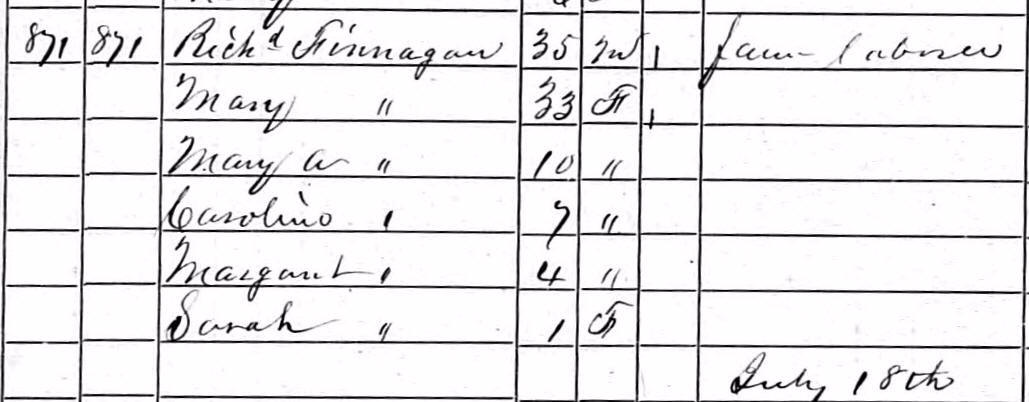 871 871 Rich^d Finnagan 35 M 1 farm laborer
Mary " 33 F 1
Mary A " 10 "
Caroline " 7 "
Margaret " 4 "
Sarah " 1 F
July 18th